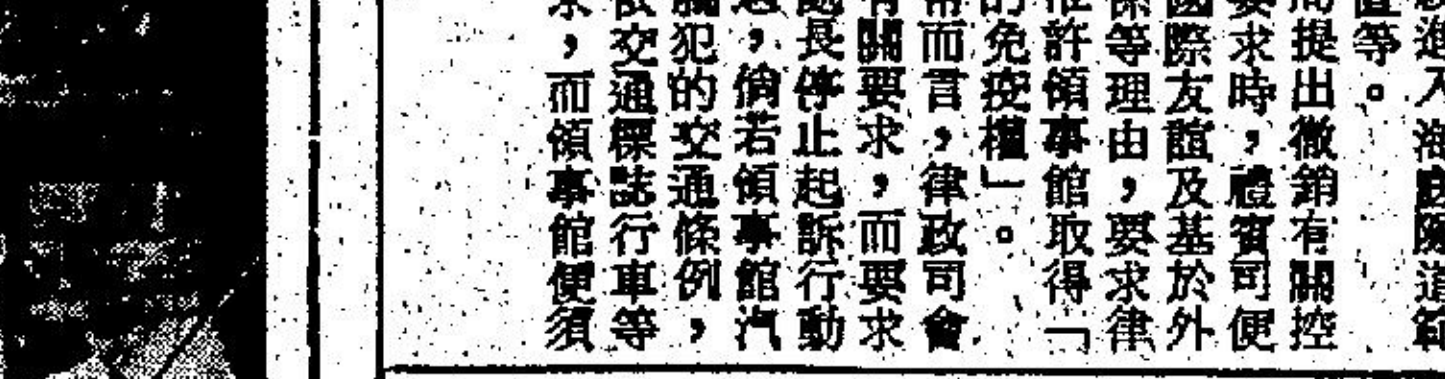 進入海底隧道範
等。
提出撤銷有關控
要求時，禮賓司便
國際友誼及基於外
等理由，要求律
許領事館取得「
的免疫權」。
而言，律政司會
有關要求，而要求
長停止起訴行動
，倘若領事館汽
犯的交通條例，
交通標誌行車等
，而領事館便須